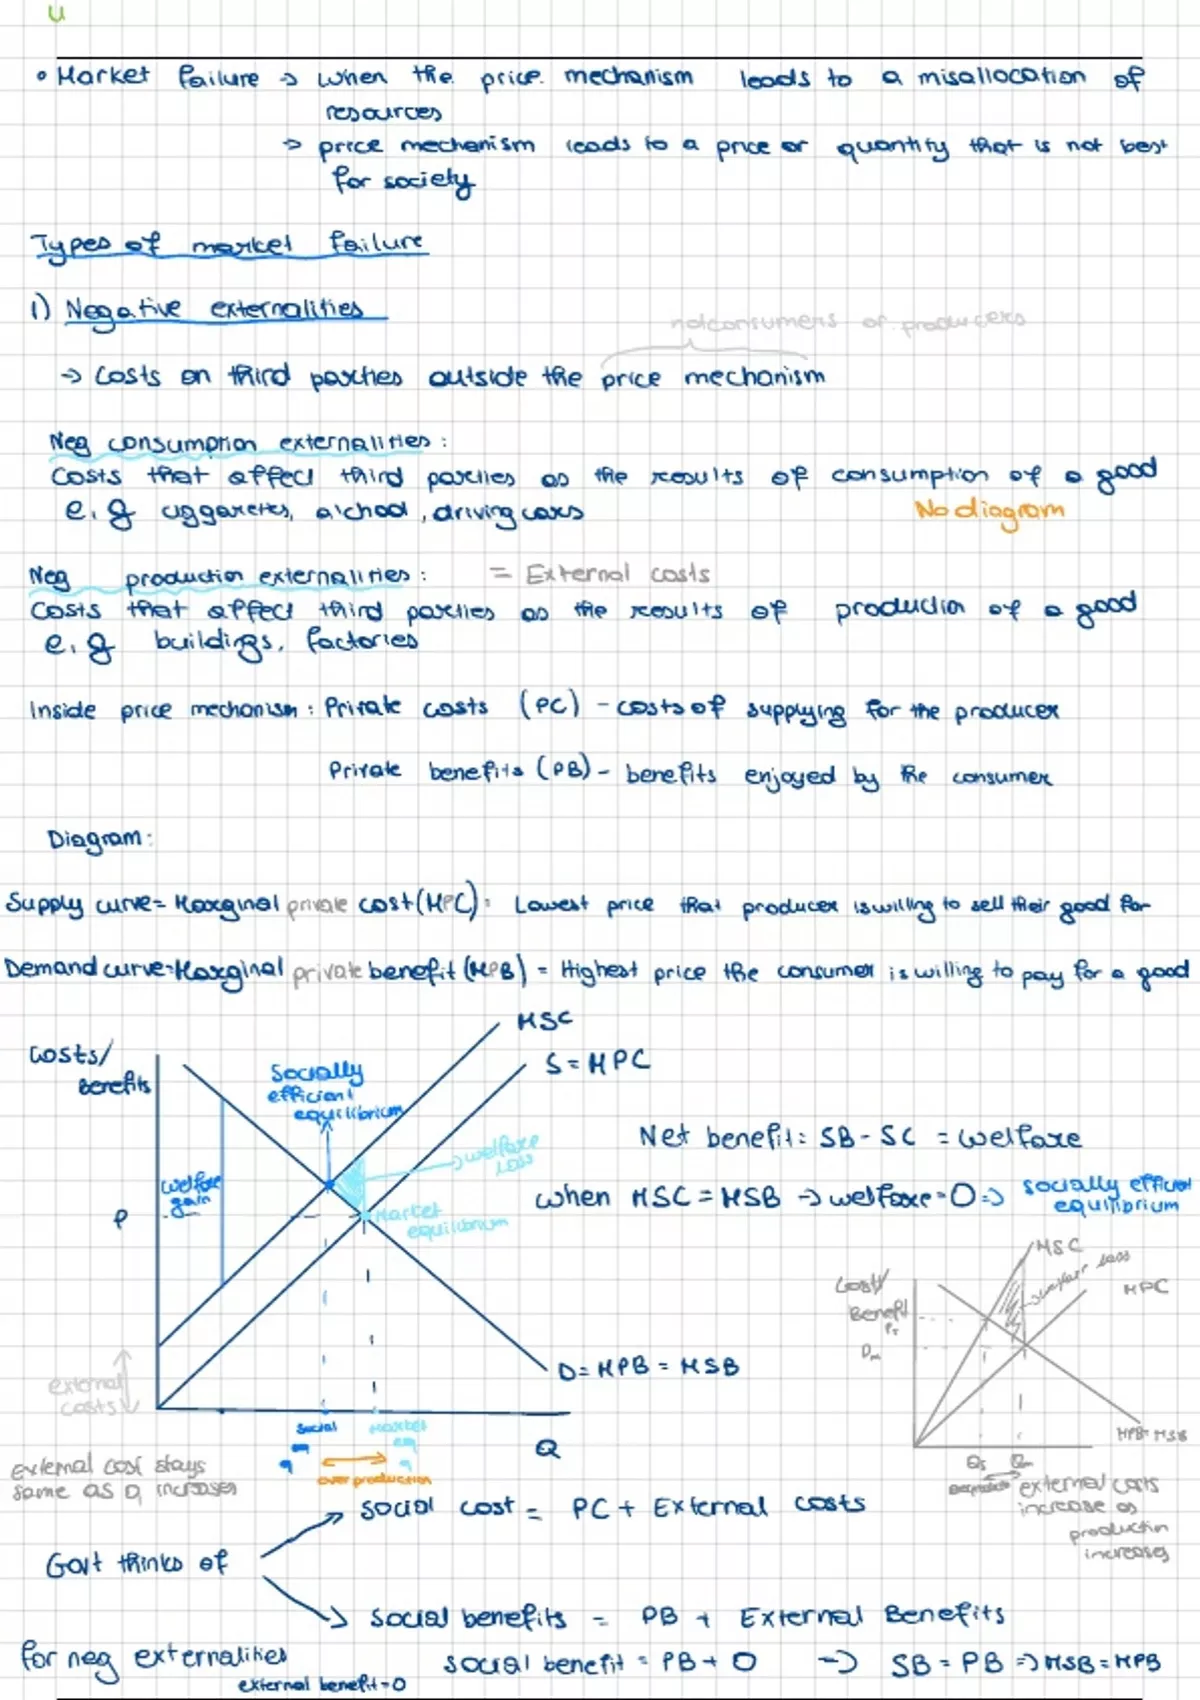 U
• Market failure → when the price mechanism leads to a misallocation of
resources
→ price mechanism leads to a price or quantity that is not best
for society
Types of market failure
1) Negative externalities
not consumers or producers
→ Costs on third parties outside the price mechanism
Neg consumption externalities:
Costs that affect third parties as the results of consumption of a good
e.g ciggaretes, alchool, driving cars
No diagram
Neg production externalities: = External costs
Costs that affect third parties as the results of production of a good
e.g buildings, factories
Inside price mechanism: Private costs (PC) - costs of supplying for the producer
Private benefits (PB) - benefits enjoyed by the consumer
Diagram:
Supply curve = Marginal private cost (MPC): Lowest price that producer is willing to sell their good for
Demand curve = Marginal private benefit (MPB) = Highest price the consumer is willing to pay for a good
MSC
Costs/
benefits
S = MPC
Socially
efficient
equilibrium
Net benefit: SB - SC = welfare
→ welfare
loss
welfare
gain
when MSC = MSB → welfare = 0 ⇒ socially efficient
equilibrium
P
Market
equilibrium
MSC
welfare loss
Cost/
Benefit
MPC
D = MPB = MSB
external
costs
MPB = MSB
Social
q
Market
eq
q
Q
Qs Qm
over production
external cost stays
same as q increases
external costs
increase as
production
increases
Social cost = PC + External costs
Govt thinks of
Social benefits = PB + External Benefits
for neg externalities
external benefit = 0
social benefit = PB + 0 → SB = PB ⇒ MSB = MPB